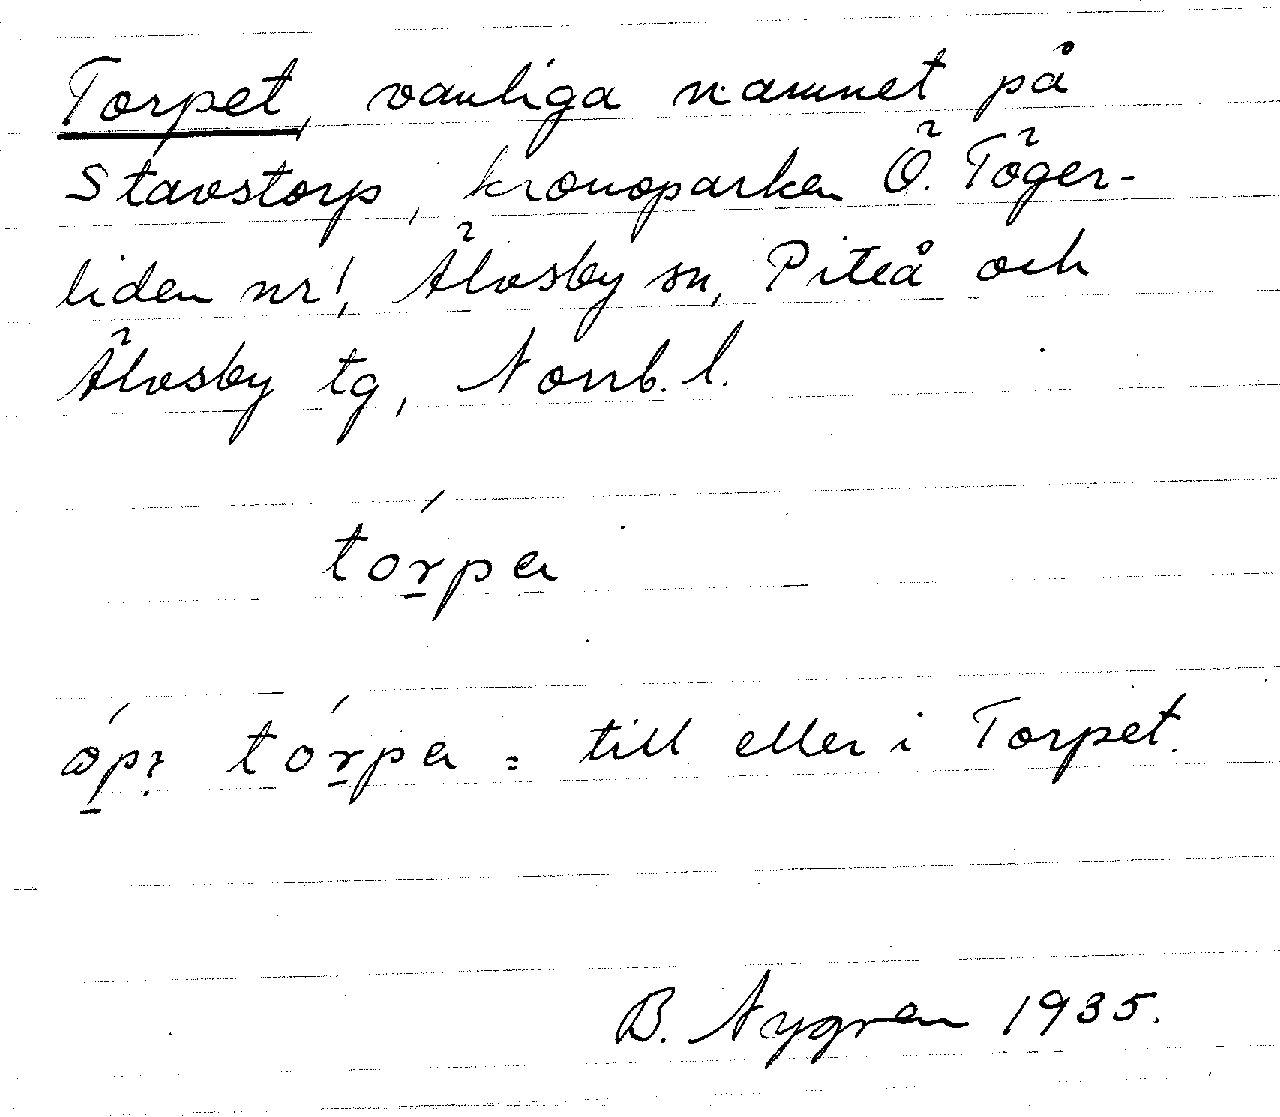 Torpet, vanliga namnet på
Stavstorp, kronoparken Ö. Töger-
liden nr 1, Älvsby sn, Piteå och
Älvsby tg, Norrb. l.
tórpa
óp? tórpa = till eller i Torpet.
B. Nygren 1935.